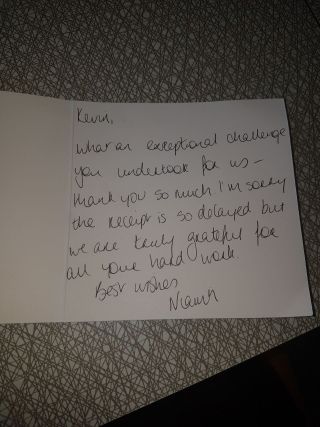 Kevin,
What an exceptional challenge
you undertook for us –
thank you so much I'm sorry
the receipt is so delayed but
we are truly grateful for
all your hard work.
Best wishes
Niamh